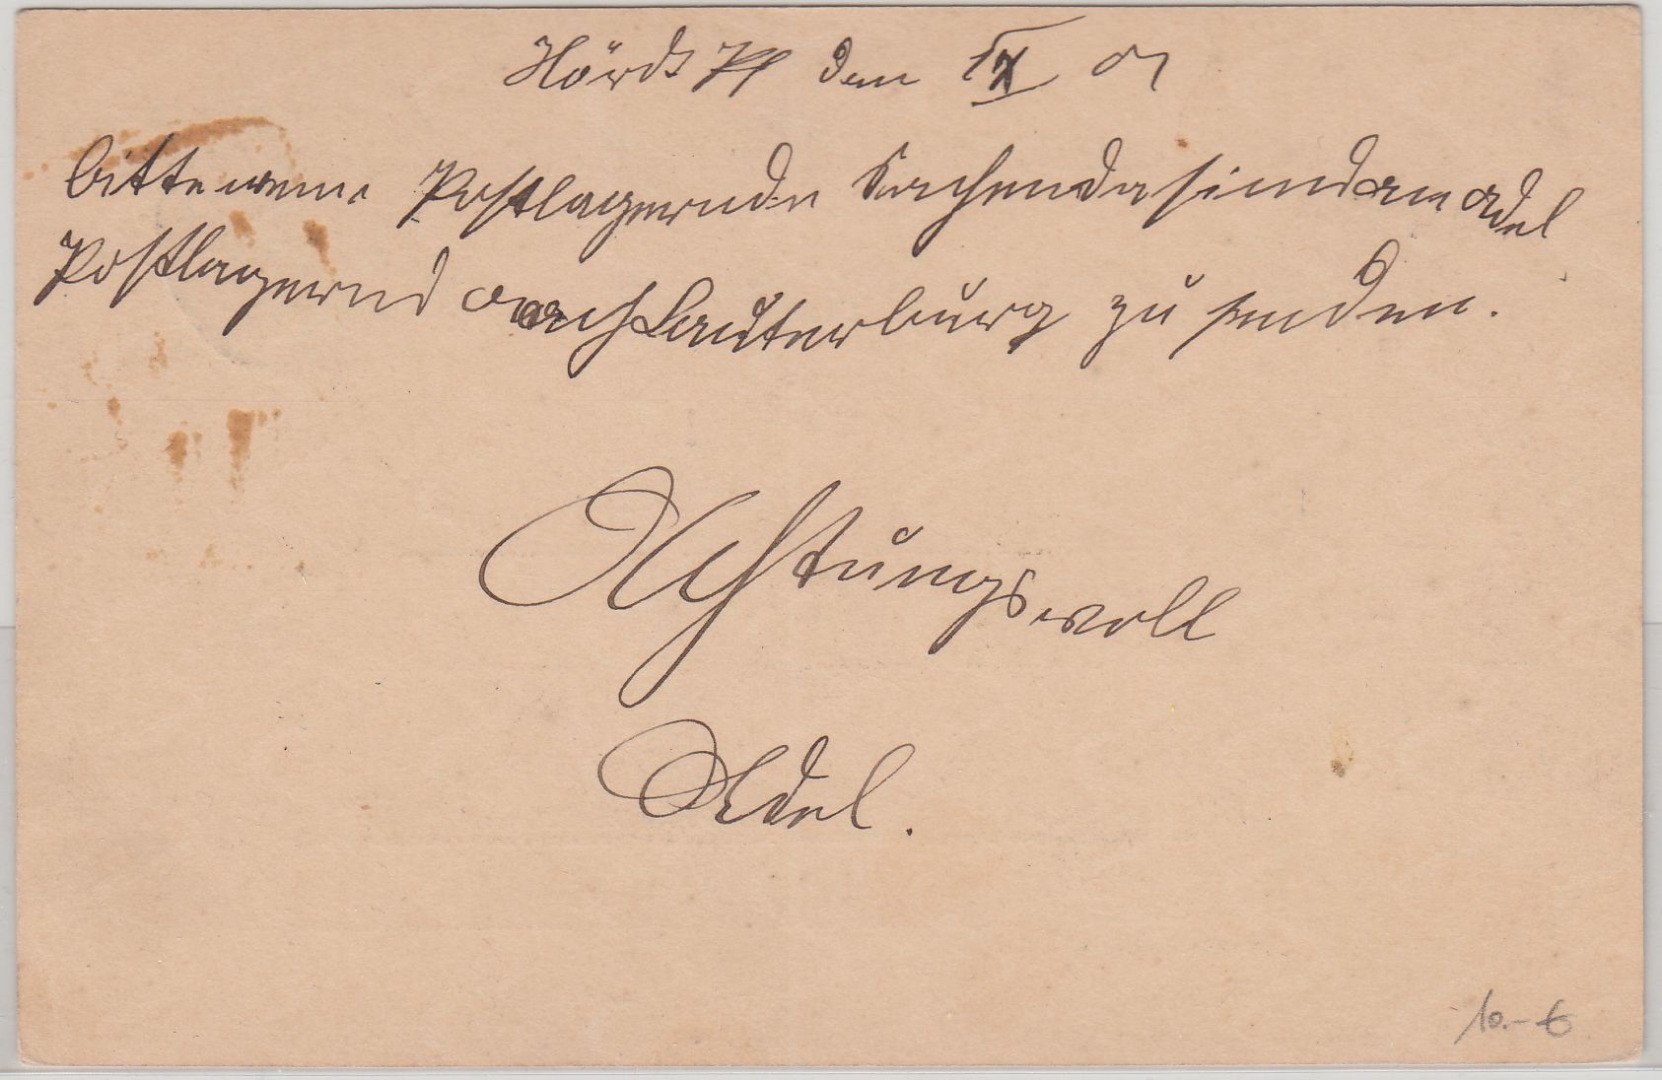 Hördt Pf den X 01
bitte wenn Postlagernde Sachen da sind an Adel
Postlagernd nach Lauterburg zu senden.
Achtungsvoll
Adel.
10.- €